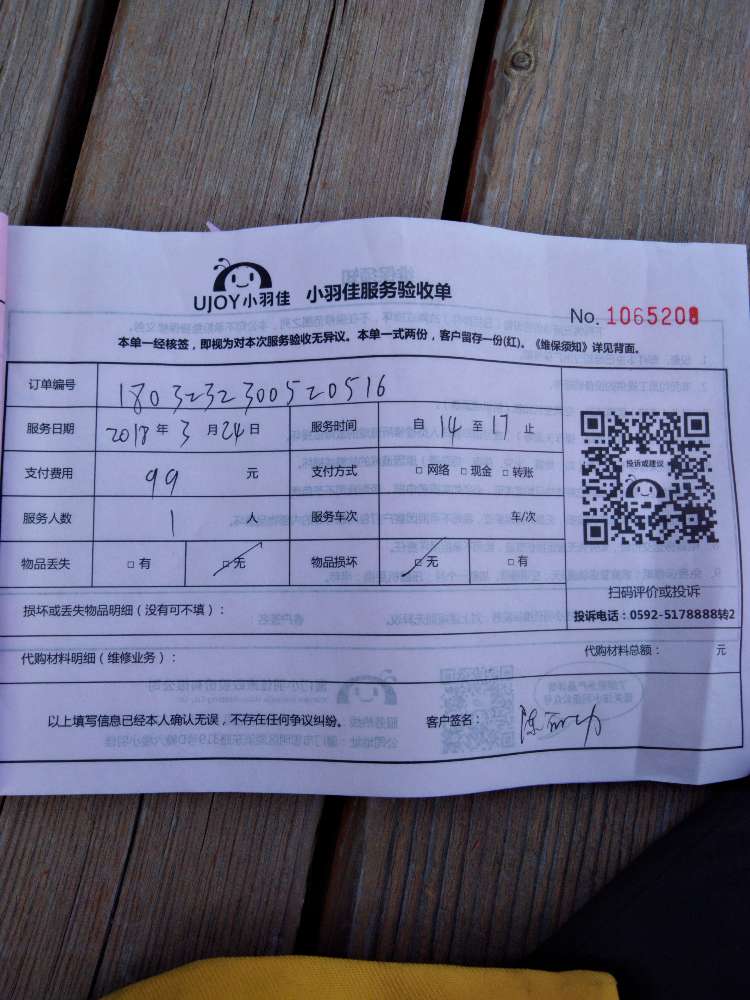 UJOY小羽佳 小羽佳服务验收单
No. 1065208
本单一经核签，即视为对本次服务验收无异议。本单一式两份，客户留存一份(红)。《维保须知》详见背面。
订单编号 180323230052​0516
服务日期 2018年3月24日 服务时间 自14至17止
支付费用 99 元 支付方式 □网络 □现金 □转账
服务人数 1 人 服务车次 车/次
物品丢失 □有 □无 物品损坏 □无 □有
投诉或建议
扫码评价或投诉
损坏或丢失物品明细（没有可不填）：
投诉电话：0592-5178888转2
代购材料明细（维修业务）： 代购材料总额： 元
以上填写信息已经本人确认无误，不存在任何争议纠纷。 客户签名：